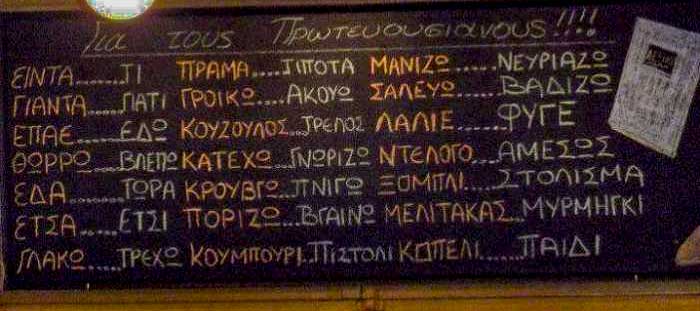 Για τους Πρωτευουσιανους!!!!
ΕΙΝΤΑ......ΤΙ ΠΡΑΜΑ....ΤΙΠΟΤΑ ΜΑΝΙΖΩ.....ΝΕΥΡΙΑΖΩ
ΓΙΑΝΤΑ.....ΓΙΑΤΙ ΓΡΟΙΚΩ....ΑΚΟΥΩ ΣΑΛΕΥΩ.....ΒΑΔΙΖΩ
ΕΠΑΕ.....ΕΔΩ ΚΟΥΖΟΥΛΟΣ...ΤΡΕΛΟΣ ΛΑΛΙΕ......ΦΥΓΕ
ΘΩΡΡΩ....ΒΛΕΠΩ ΚΑΤΕΧΩ...ΓΝΩΡΙΖΩ ΝΤΕΛΟΓΟ....ΑΜΕΣΩΣ
ΕΔΑ......ΤΩΡΑ ΚΡΟΥΒΓΩ...ΠΝΙΓΩ ΞΟΜΠΛΙ.....ΣΤΟΛΙΣΜΑ
ΕΤΣΑ.....ΕΤΣΙ ΠΟΡΙΖΩ...ΒΓΑΙΝΩ ΜΕΛΙΤΑΚΑΣ..ΜΥΡΜΗΓΚΙ
ΓΛΑΚΩ.....ΤΡΕΧΩ ΚΟΥΜΠΟΥΡΙ..ΠΙΣΤΟΛΙ ΚΟΠΕΛΙ.....ΠΑΙΔΙ